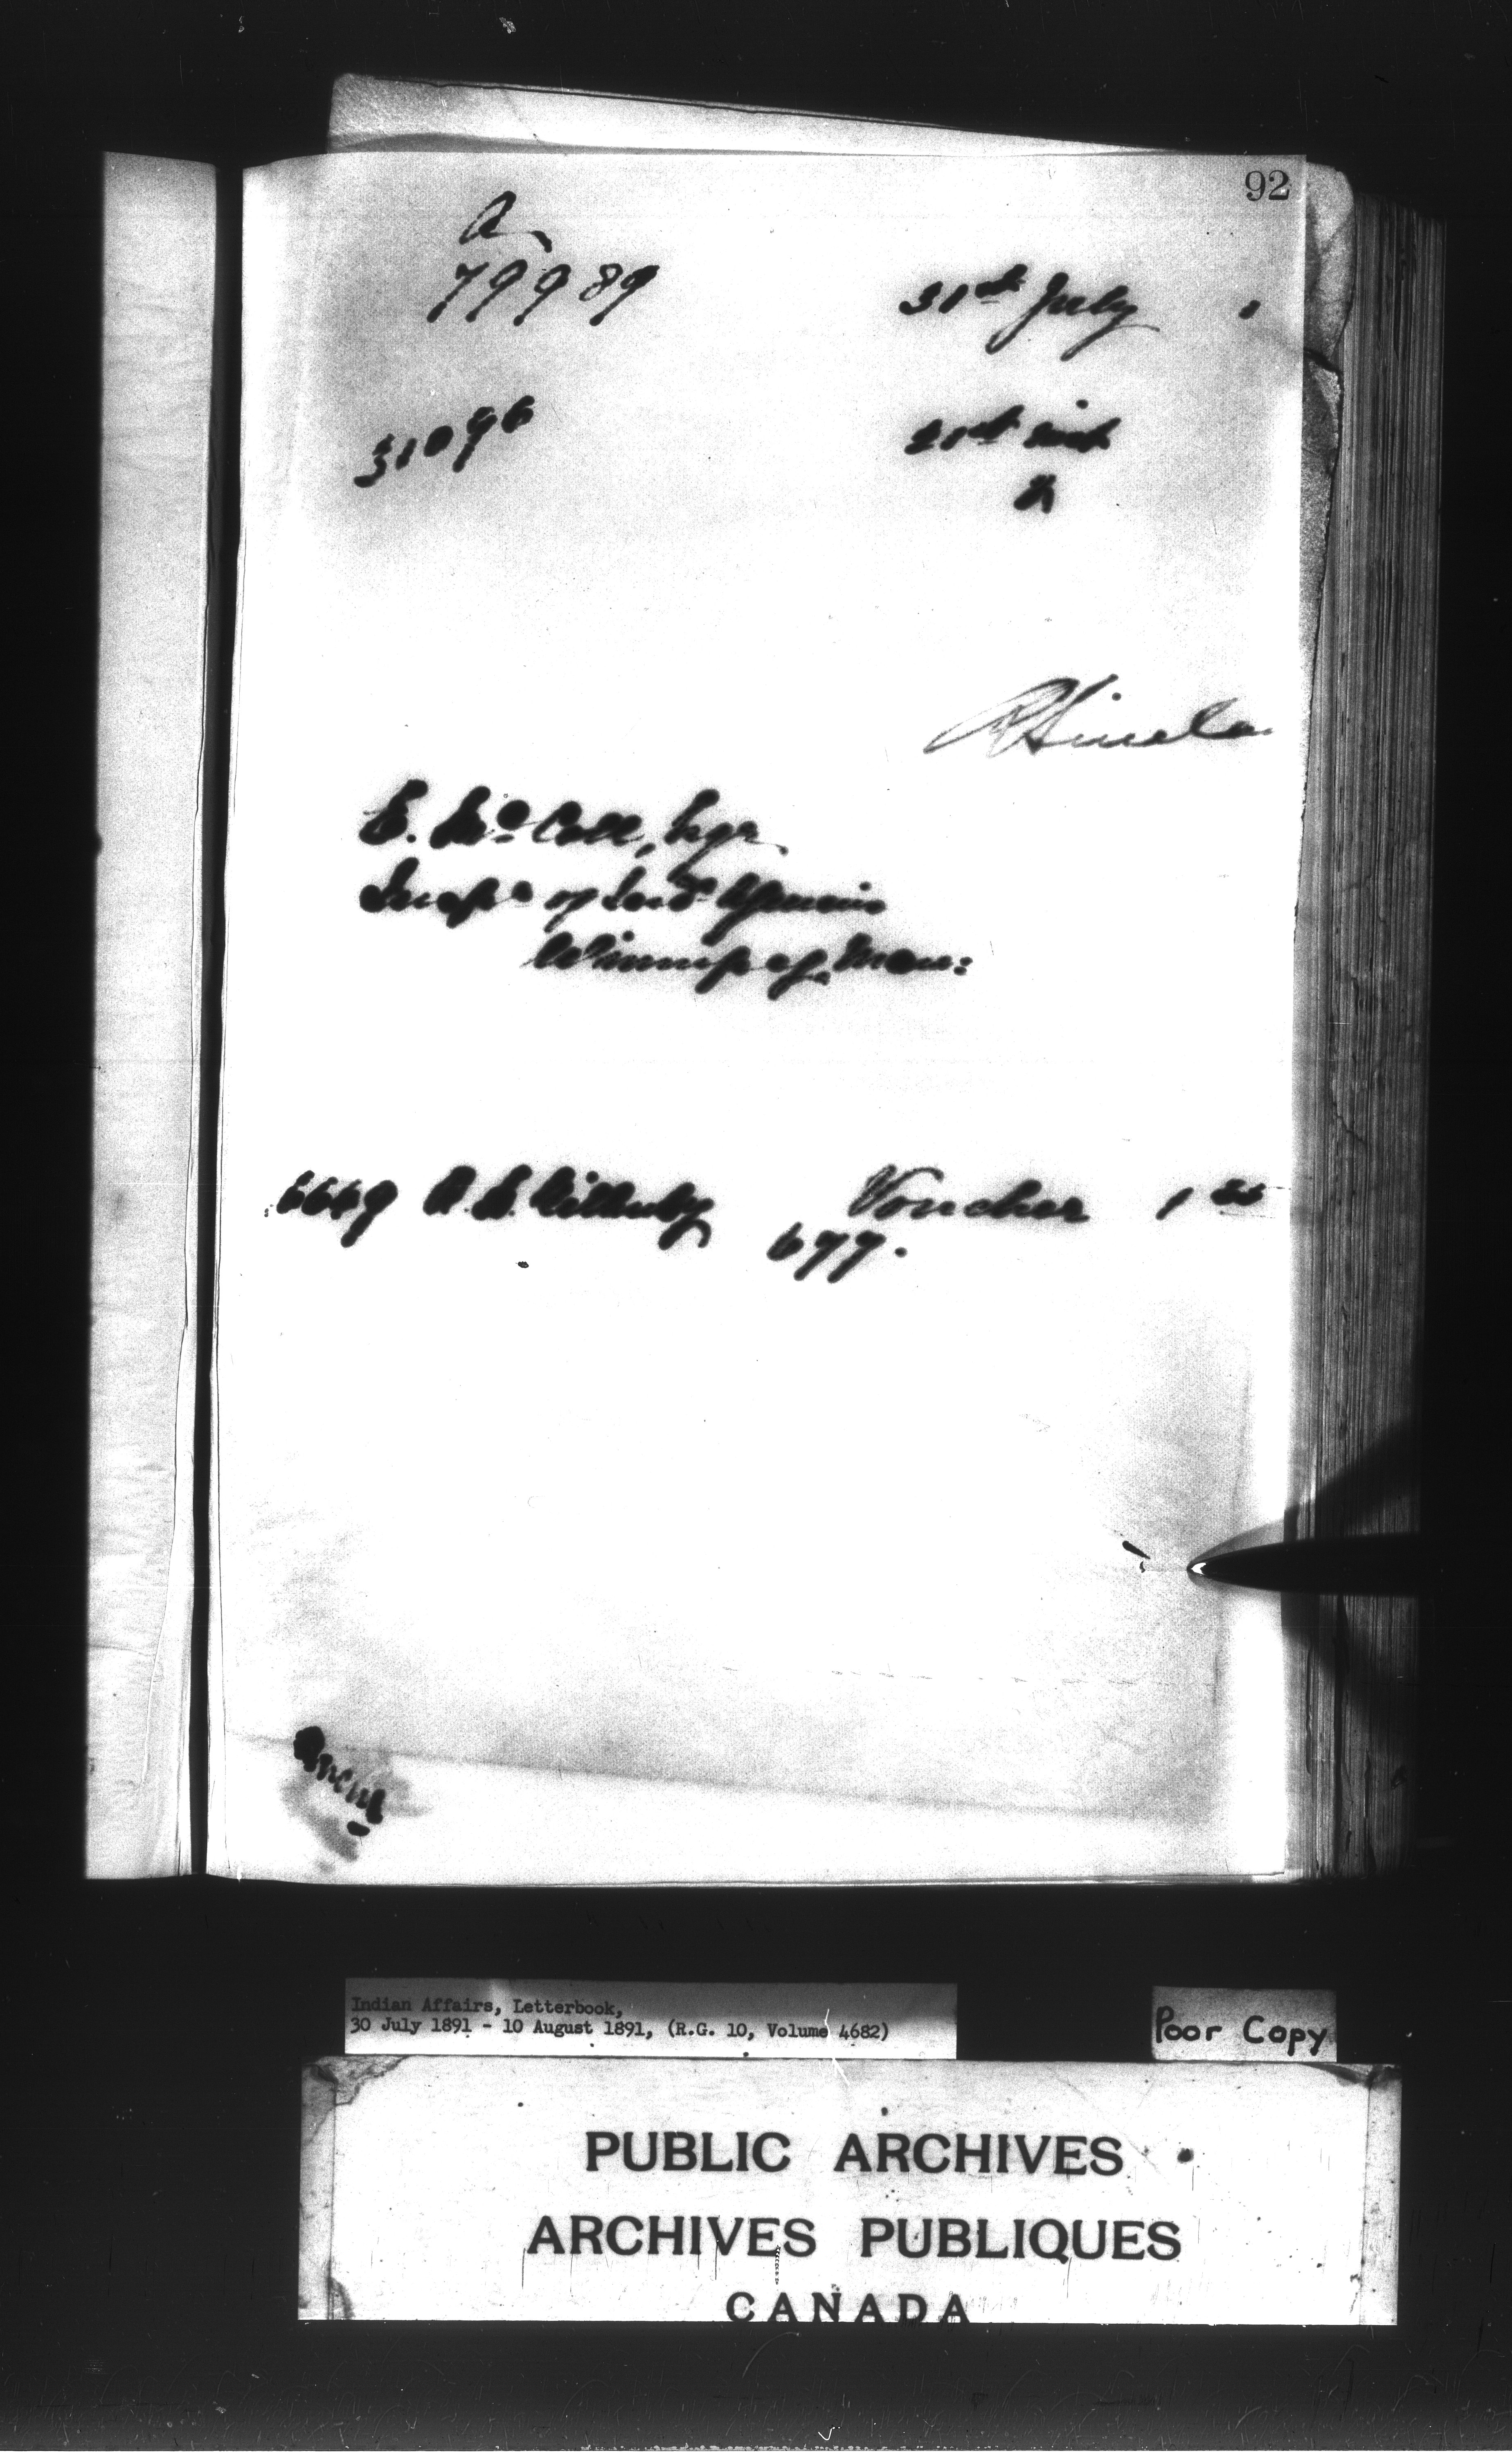 92
A
79989
31st July 1
31096
21st inst
R Sincla
E. McColl, Esqr
Inspr of Ind Agencies
Winnipeg, Man:
6649 A. S. Voucher 1
677.
Indian Affairs, Letterbook,
30 July 1891 - 10 August 1891, (R.G. 10, Volume 4682)
Poor Copy
PUBLIC ARCHIVES
ARCHIVES PUBLIQUES
CANADA